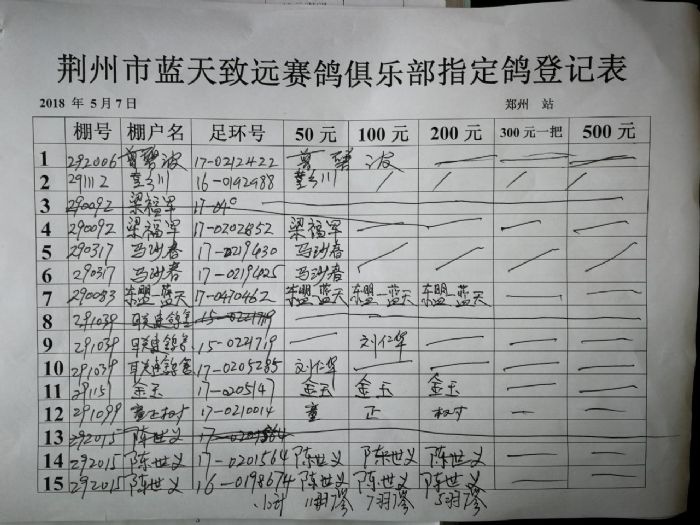 荆州市蓝天致远赛鸽俱乐部指定鸽登记表
2018 年 5月7日 郑州 站
棚号 棚户名 足环号 50元 100元 200元 300元一把 500元
1 292006 17-0212422
2 291112 16-0192988
3 290092 梁福军 17-040
4 290092 梁福军 17-0202852 梁福军
5 290317 马沙春 17-0219430 马沙春
6 290317 马沙春 17-0219025 马沙春
7 290083 东盟_蓝天 17-0470462 东盟_蓝天 东盟_蓝天 东盟_蓝天
8 291039 15-0221719
9 291039 15-0221719 刘仁华
10 291039 17-0205285 刘仁华
11 29115 金玉 17-0205147 金玉 金玉 金玉
12 291099 董正权 17-0210014 董 正 权
13 292015 陈世义 17-0201564
14 292015 陈世义 17-0201564 陈世义 陈世义 陈世义
15 292015 陈世义 16-0198674 陈世义 陈世义 陈世义
小计 11羽 7羽 5羽